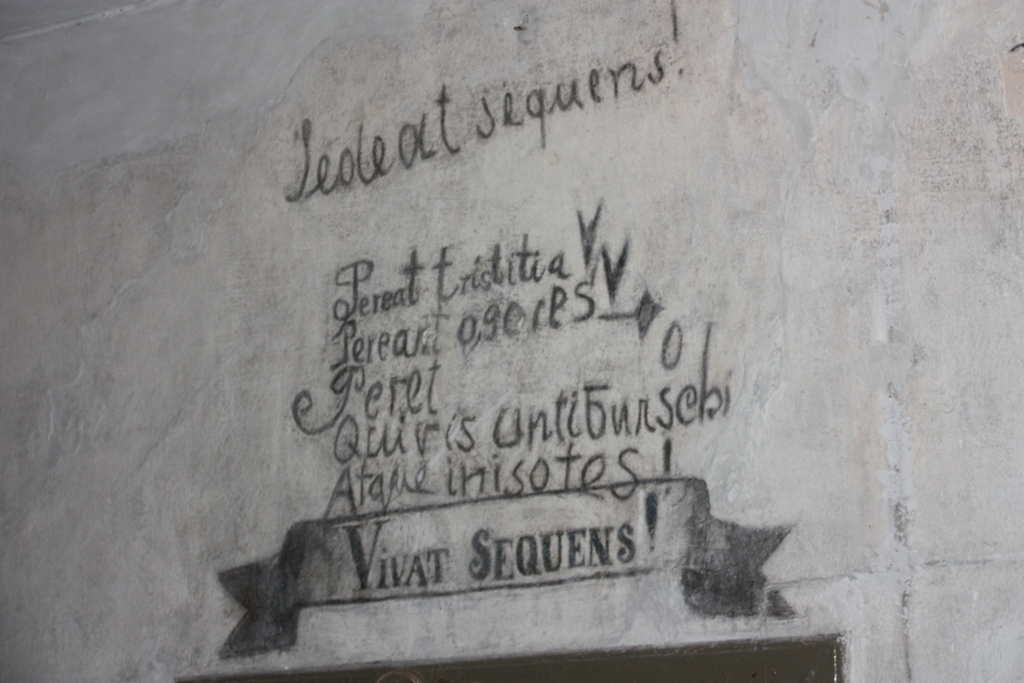 Sedeat sequens!
Pereat tristitia
Pereant osores
Peret
Quivis antiburschi
Atque inisotes!
VIVAT SEQUENS!